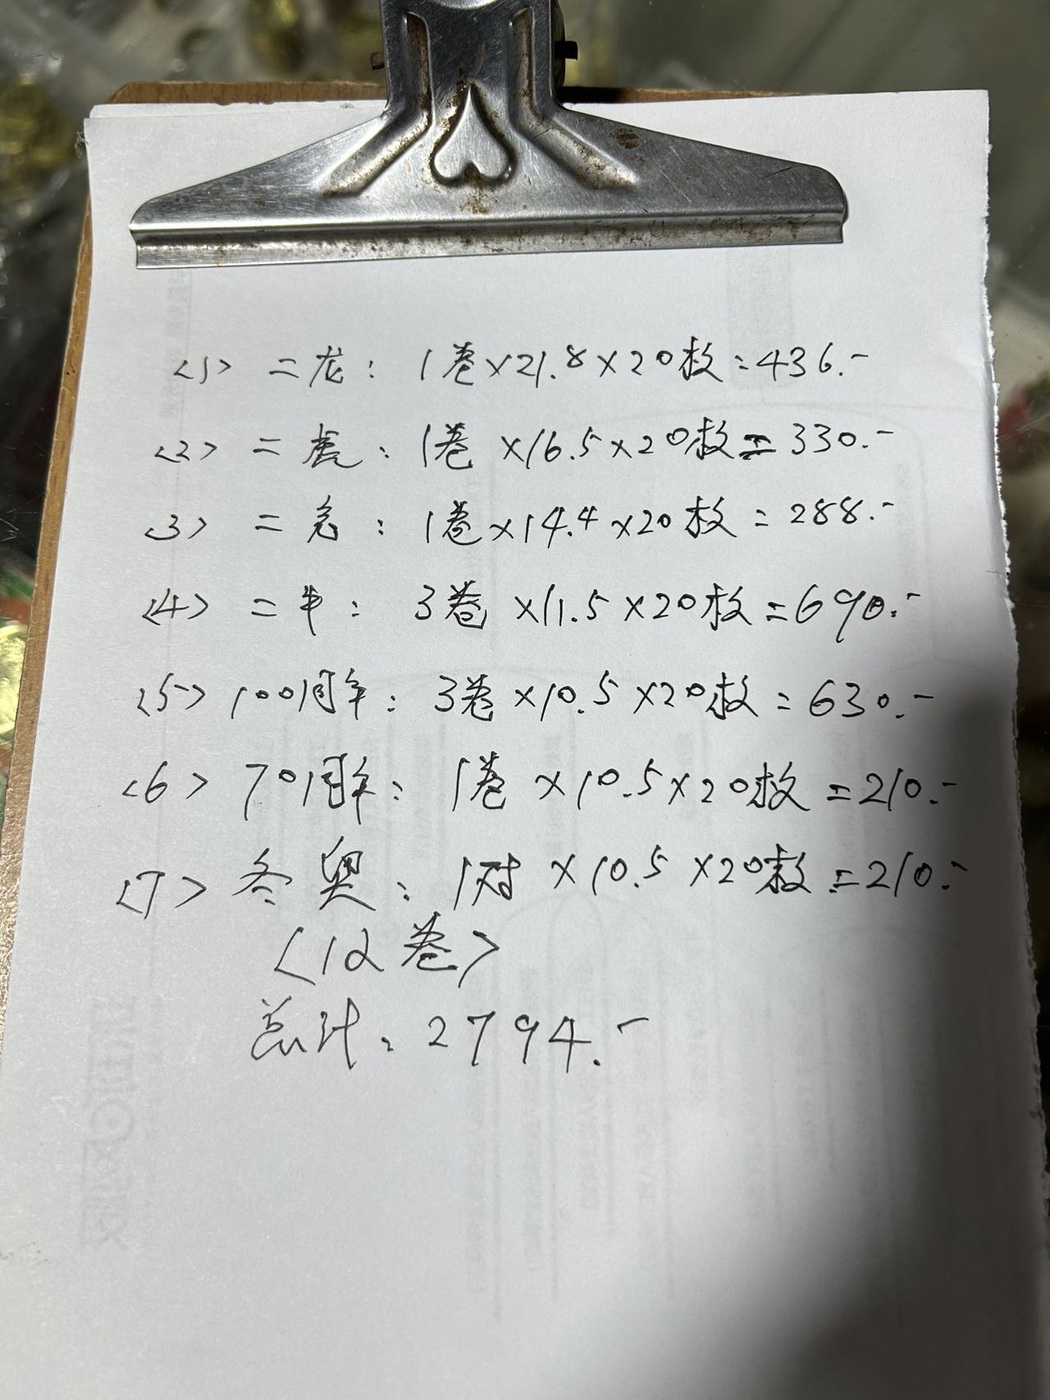 <1> 二龙：1卷×21.8×20枚=436.-
<2> 二虎：1卷×16.5×20枚=330.-
<3> 二兔：1卷×14.4×20枚=288.-
<4> 二牛：3卷×11.5×20枚=690.-
<5> 100周年：3卷×10.5×20枚=630.-
<6> 70周年：1卷×10.5×20枚=210.-
<7> 冬奥：1对×10.5×20枚=210.-
<12卷>
总计：2794.-